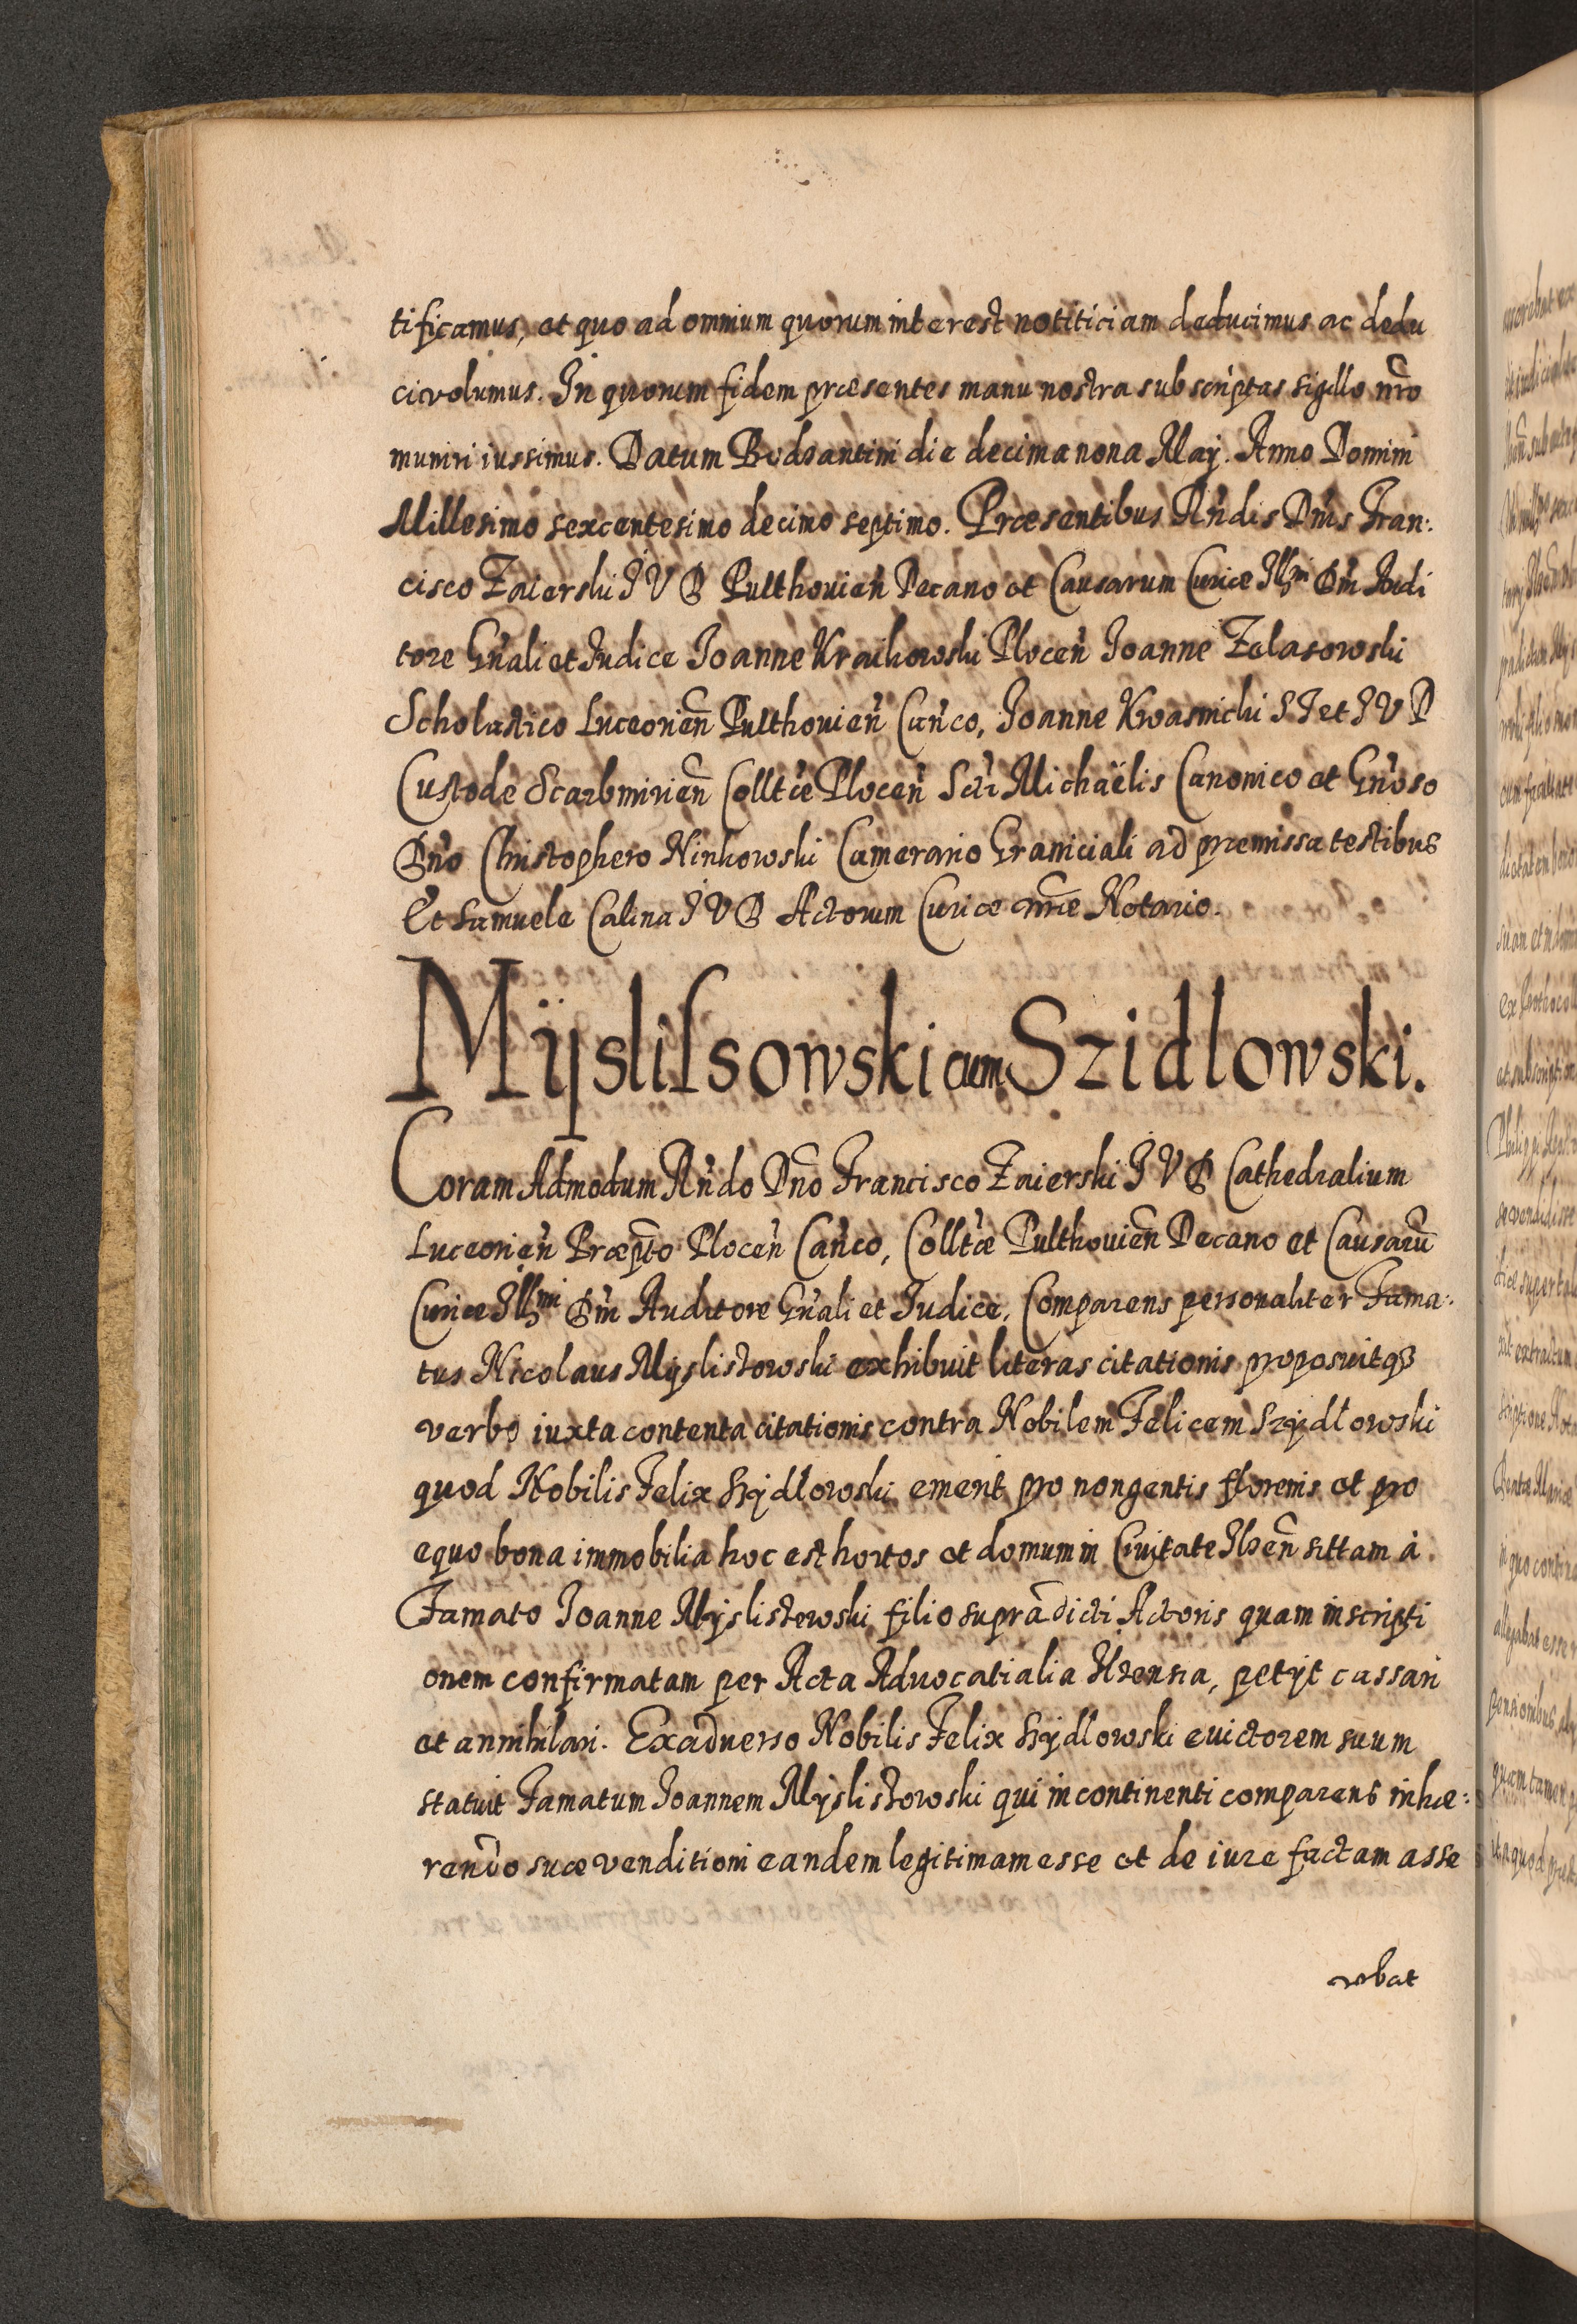 tificamus, et quo ad omnium quorum interest notiticiam deducimus ac dedu
ci volumus. In quorum fidem præsentes manu nostra subscriptas sigillo nr̃o
muniri iussimus. Datum Bodzantini die decima nona Maÿ. Anno Domini
Millesimo sexcentesimo decimo septimo. Præsentibus Rn̄dis Dn̄is Fran:
cisco Zaierski I V D Pulthouien̄ Decano et Causarum Curiæ Illmi Dn̄i Audi
tore Gn̄ali et Iudice Ioanne Kraikowski Plocen̄ Ioanne Zelasowski
Scholastico Luceorien̄ Pulthouien̄ Can̄co, Ioanne Kwasnicki S T et I V D
Custode Scarbmirien̄ Colltæ Plocen̄ Scti Michaëlis Canonico et Gn̄oso
Dn̄o Christophero Ninkowski Camerario Graniciali ad præmissa testibus
Et Samuele Calina I V D Actorum Curiæ nr̃æ Notario.
Mÿslisowski cum Szidlowski.
Coram Admodum Rn̄do Dn̄o Francisco Zaierski I V D Cathedralium
Luceorien̄ Præpto Plocen̄ Can̄co, Colltæ Pulthouien̄ Decano et Causarū
Curiæ Illmi Dn̄i Auditore Gn̄ali et Iudice, Comparens personaliter Fama:
tus Nicolaus Mÿslistowski exhibuit literas citationis proposuitqȝ
verbo iuxta contenta citationis contra Nobilem Felicem Szÿdlowski
quod Nobilis Felix Szÿdlowski emerit pro nongentis florenis et pro
equo bona immobilia hoc est hortos et domum in Ciuitate Ilzen̄ sittam à
Famato Ioanne Mÿslistowski filio supradicti Actoris quam inscripti
onem confirmatam per Acta Aduocatialia Ilzensia, petÿt cassari
et annihilari. Exaduerso Nobilis Felix Szÿdlowski euictorem suum
statuit Famatum Ioannem Mÿslistowski qui incontinenti comparens inhæ:
rendo suæ venditioni eandem legitimam esse et de iure factam asse
rebat